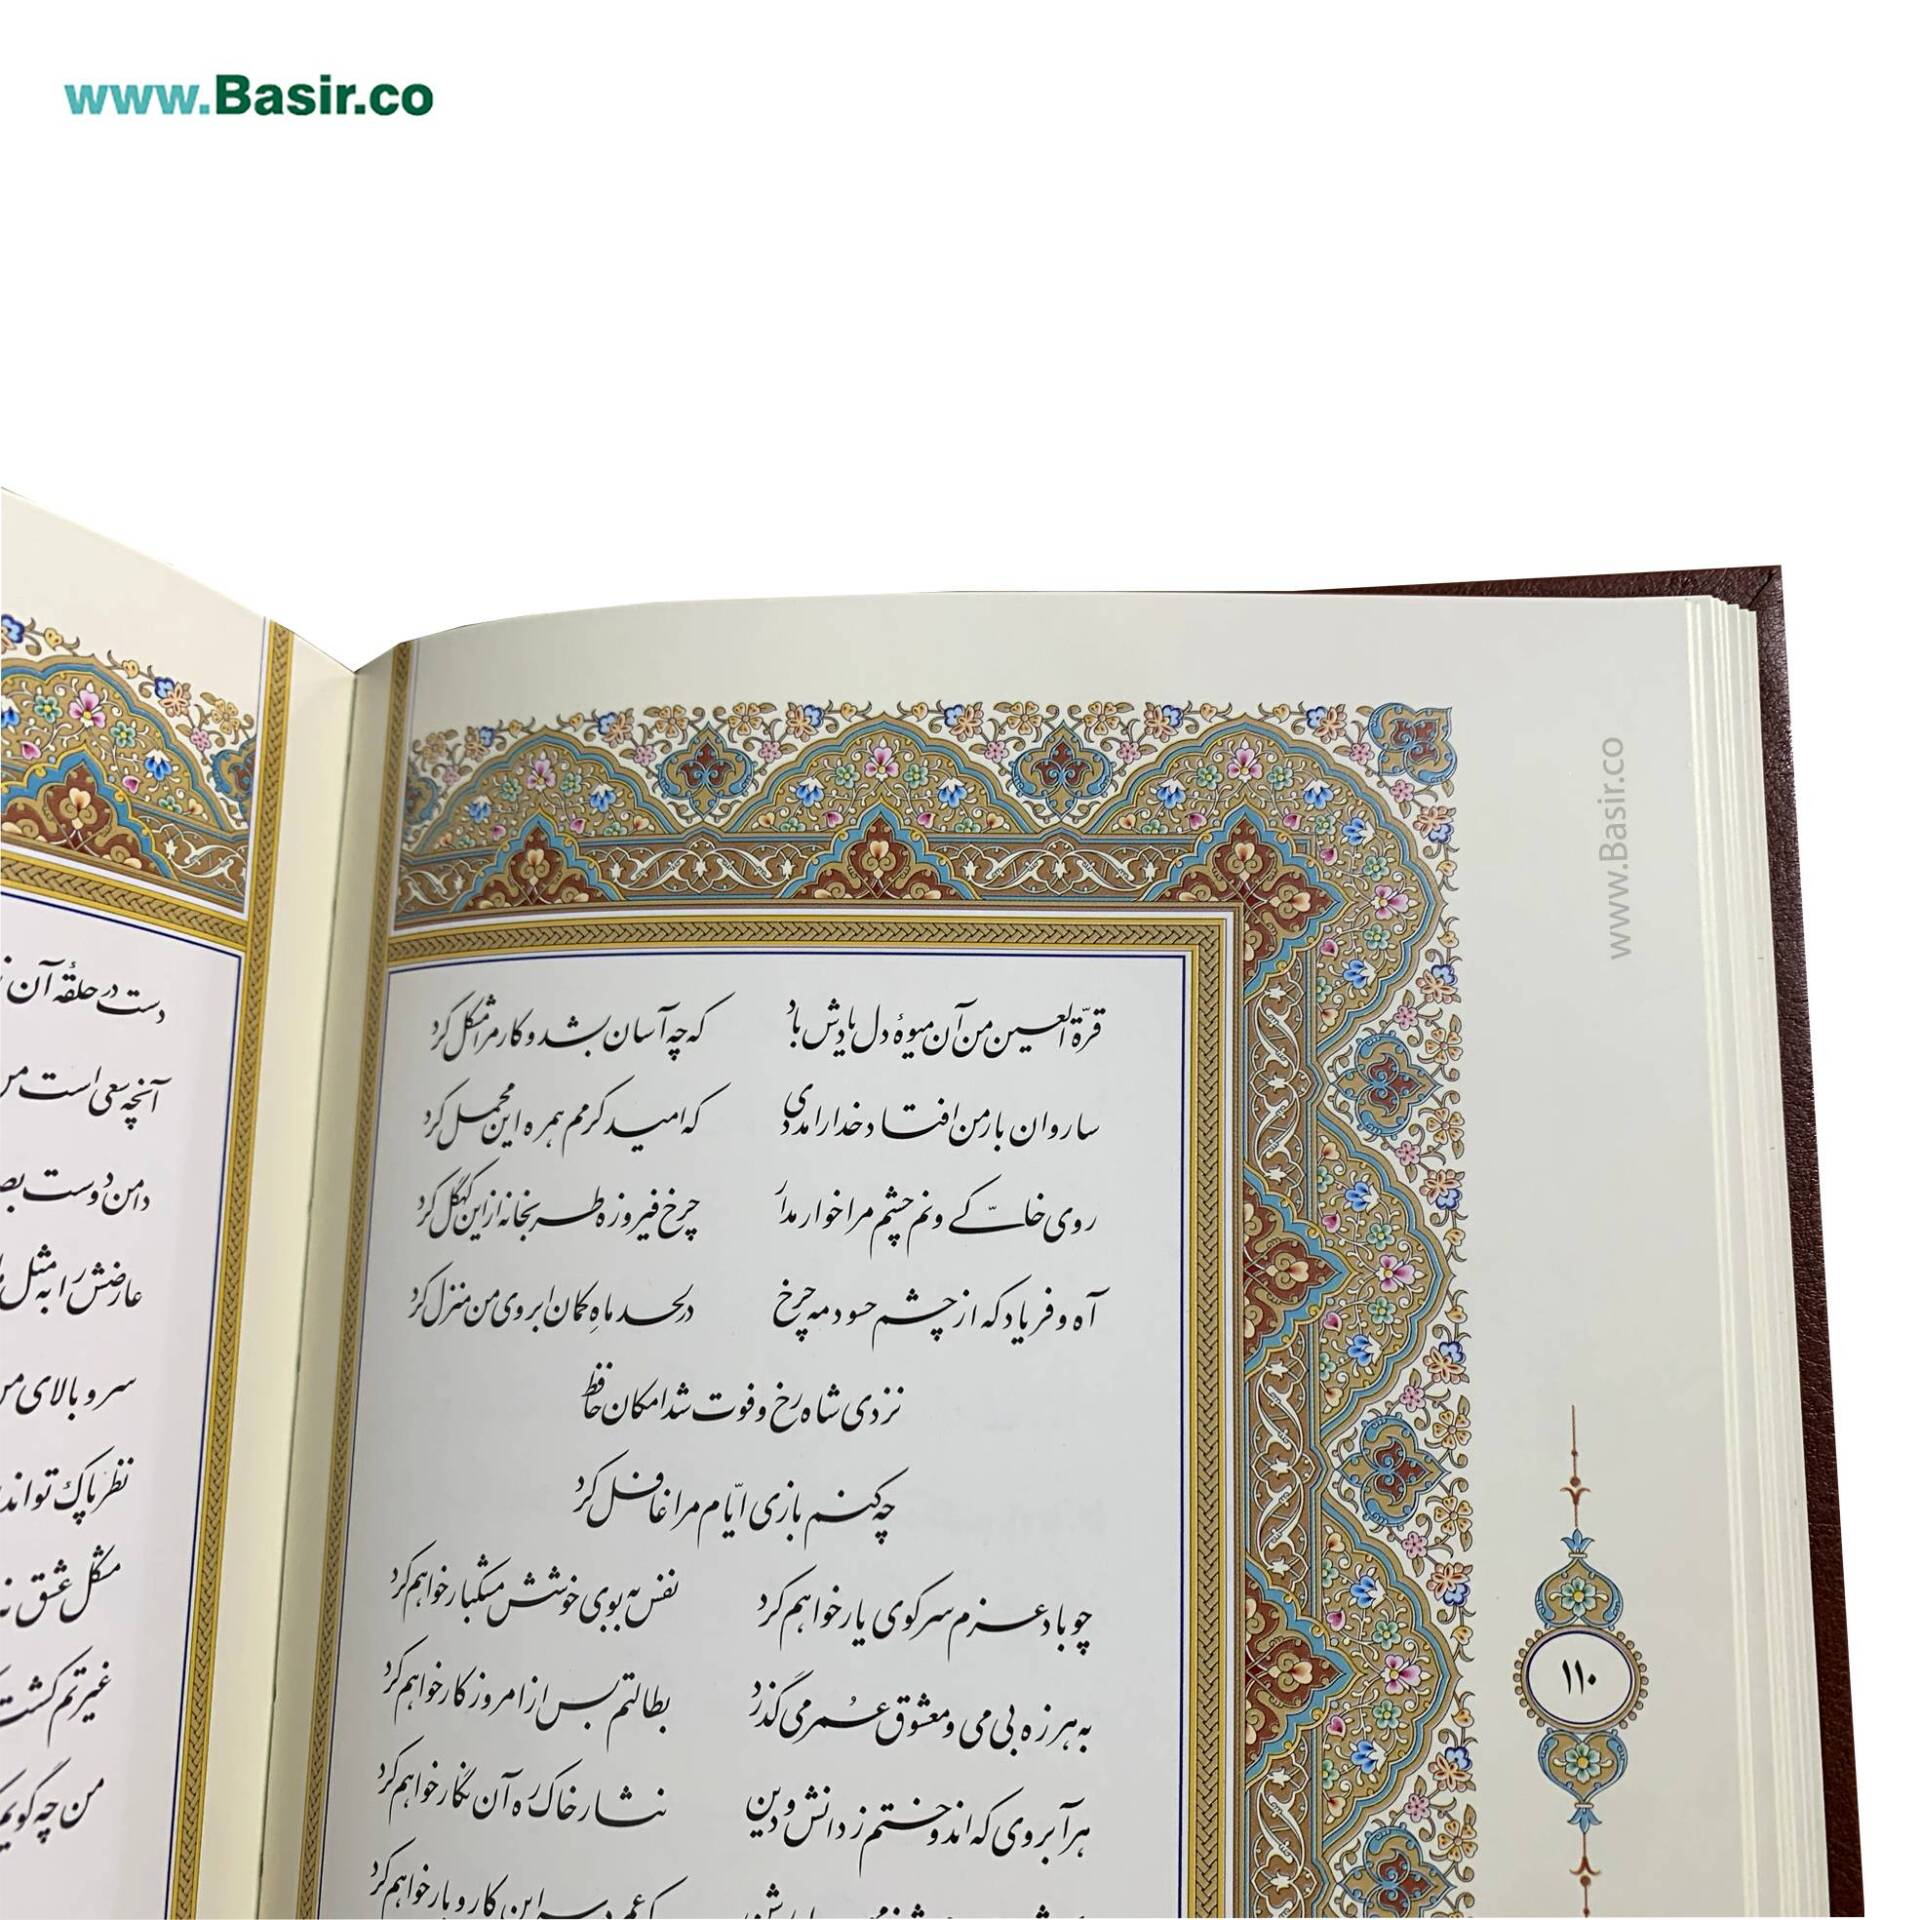 www.Basir.co
www.Basir.co
قرّة العین من آن میوهٔ دل یادش باد که چه آسان بشد و کار مرا مشکل کرد
ساروان بار من افتاد خدا را مددی که امید کرمم همره این محمل کرد
روی خاکی و نم چشم مرا خوار مدار چرخ فیروزه طربخانه از این کهگل کرد
آه و فریاد که از چشم حسود مه چرخ در لحد ماهِ کمان ابروی من منزل کرد
نزدی شاه رخ و فوت شد امکان حافظ
چه کنم بازی ایّام مرا غافل کرد
چو باد عزم سر کوی یار خواهم کرد نفس به بوی خوشش مشکبار خواهم کرد
به هرزه بی می و معشوق عمر می گذرد بطالتم بس از امروز کار خواهم کرد
هر آبروی که اندوختم ز دانش و دین نثار خاک ره آن نگار خواهم کرد
این کار و بار خواهم کرد
۱۱۰
دست در حلقهٔ آن
آنچه سعی است من
دامن دوست
عارضش را به مثل
سرو بالای من
نظر پاک تواند
مشکل عشق
غیرتم کشت
من چه گویم